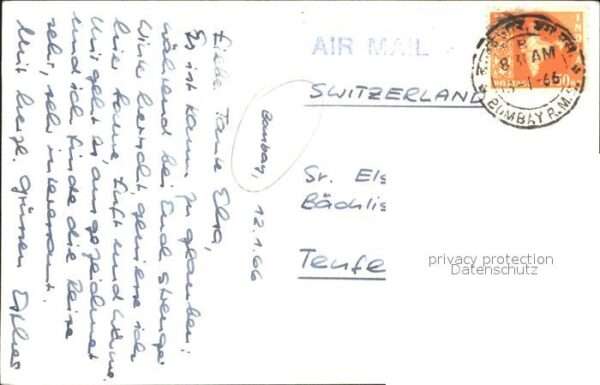 Bombay, 12.1.66
Liebe Tante Elsa,
Es ist kaum zu glauben:
während bei Euch strenger
Winter herrscht, geniesse ich
hier Sonne, Luft und Wärme.
Mir geht es ausgezeichnet
und ich finde die Reise
sehr, sehr interessant.
Mit herzl. Grüssen Esther
AIR MAIL
SWITZERLAND
Sr. Els
Bächlis
Teufe
8 AM
-1-66
BOMBAY R.M.
50
privacy protection
Datenschutz